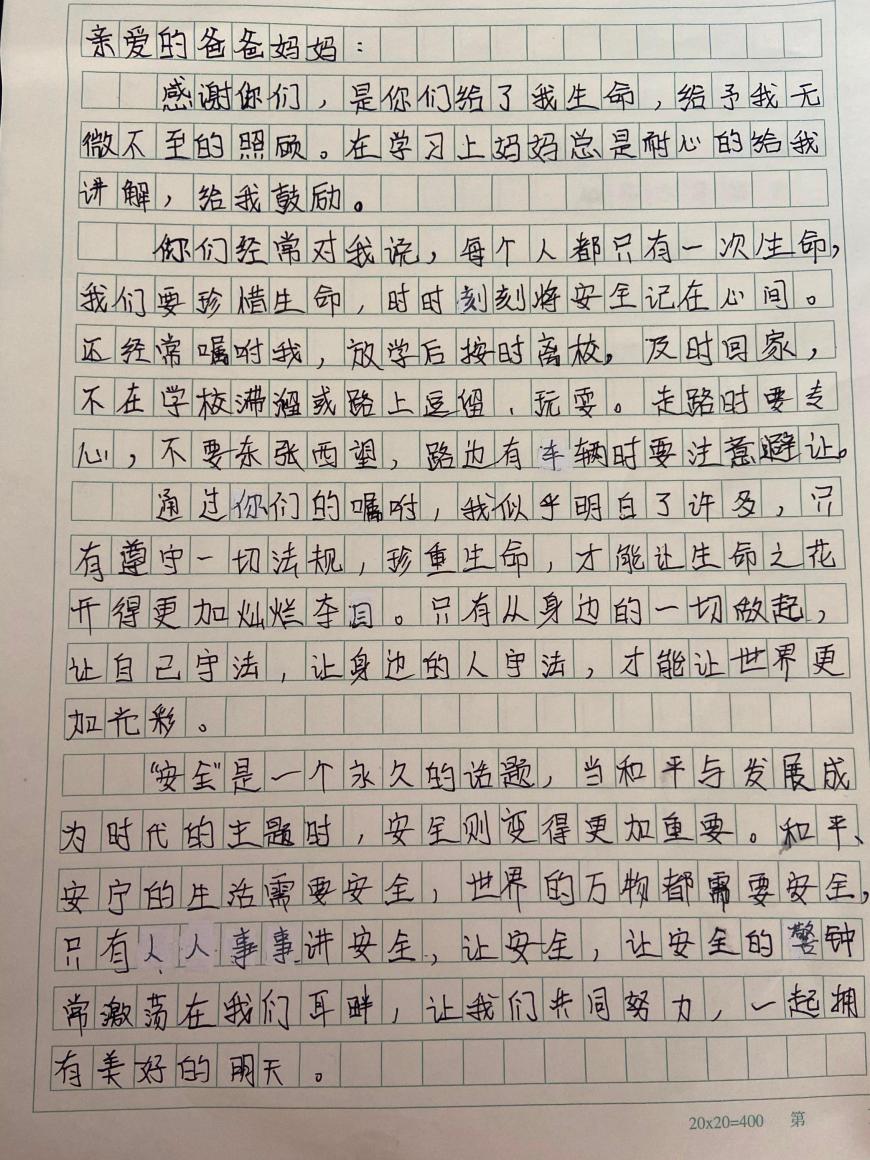 亲爱的爸爸妈妈：
感谢你们，是你们给了我生命，给予我无
微不至的照顾。在学习上妈妈总是耐心的给我
讲解，给我鼓励。
你们经常对我说，每个人都只有一次生命，
我们要珍惜生命，时时刻刻将安全记在心间。
还经常嘱咐我，放学后按时离校，及时回家，
不在学校滞溜或路上逗留、玩耍。走路时要专
心，不要东张西望，路边有车辆时要注意避让。
通过你们的嘱咐，我似乎明白了许多，只
有遵守一切法规，珍重生命，才能让生命之花
开得更加灿烂夺目。只有从身边的一切做起，
让自己守法，让身边的人守法，才能让世界更
加光彩。
“安全”是一个永久的话题，当和平与发展成
为时代的主题时，安全则变得更加重要。和平、
安宁的生活需要安全，世界的万物都需要安全，
只有人人事事讲安全，让安全，让安全的警钟
常激荡在我们耳畔，让我们共同努力，一起拥
有美好的明天。
20x20=400 第